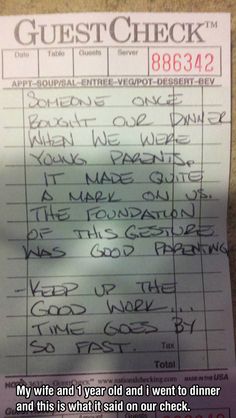 GUESTCHECK™
Date Table Guests Server
886342
APPT-SOUP/SAL-ENTREE-VEG/POT-DESSERT-BEV
SOMEONE ONCE
BOUGHT OUR DINNER
WHEN WE WERE
YOUNG PARENTS.
IT MADE QUITE
A MARK ON US.
THE FOUNDATION
OF THIS GESTURE
WAS GOOD PARENTING
-KEEP UP THE
GOOD WORK...
TIME GOES BY
SO FAST. Tax
Total
GUESTCHECK™ www.nationalchecking.com MADE IN THE USA
My wife and 1 year old and i went to dinner
and this is what it said on our check.